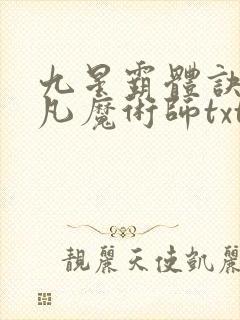 九星霸體訣
凡魔術師txt
靚麗天使凱麗